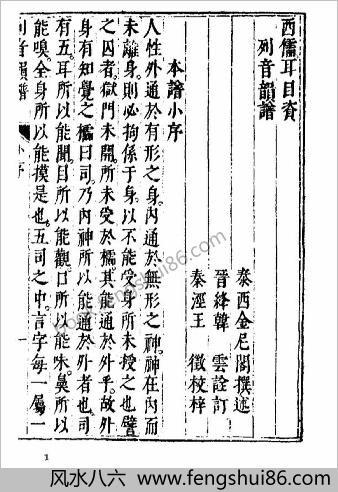 西儒耳目資
列音韻譜
泰西金尼閣撰述
晉絳韓 雲詮訂
秦涇王 徵校梓
本譜小序
人性外通於有形之身內通於無形之神神在內而
未離身則必拘係于身以不能受身所未授之也譬
之囚者獄門未開所未受於櫺其能通於外乎故外
身有知覺之櫺曰司乃內神所以能通於外者也司
有五耳所以能聞目所以能觀口所以能味鼻所以
能嗅全身所以能摸是也五司之中言字每一屬一
列音韻譜 小序 一
1
www.fengshui86.com
风水八六 – www.fengshui86.com